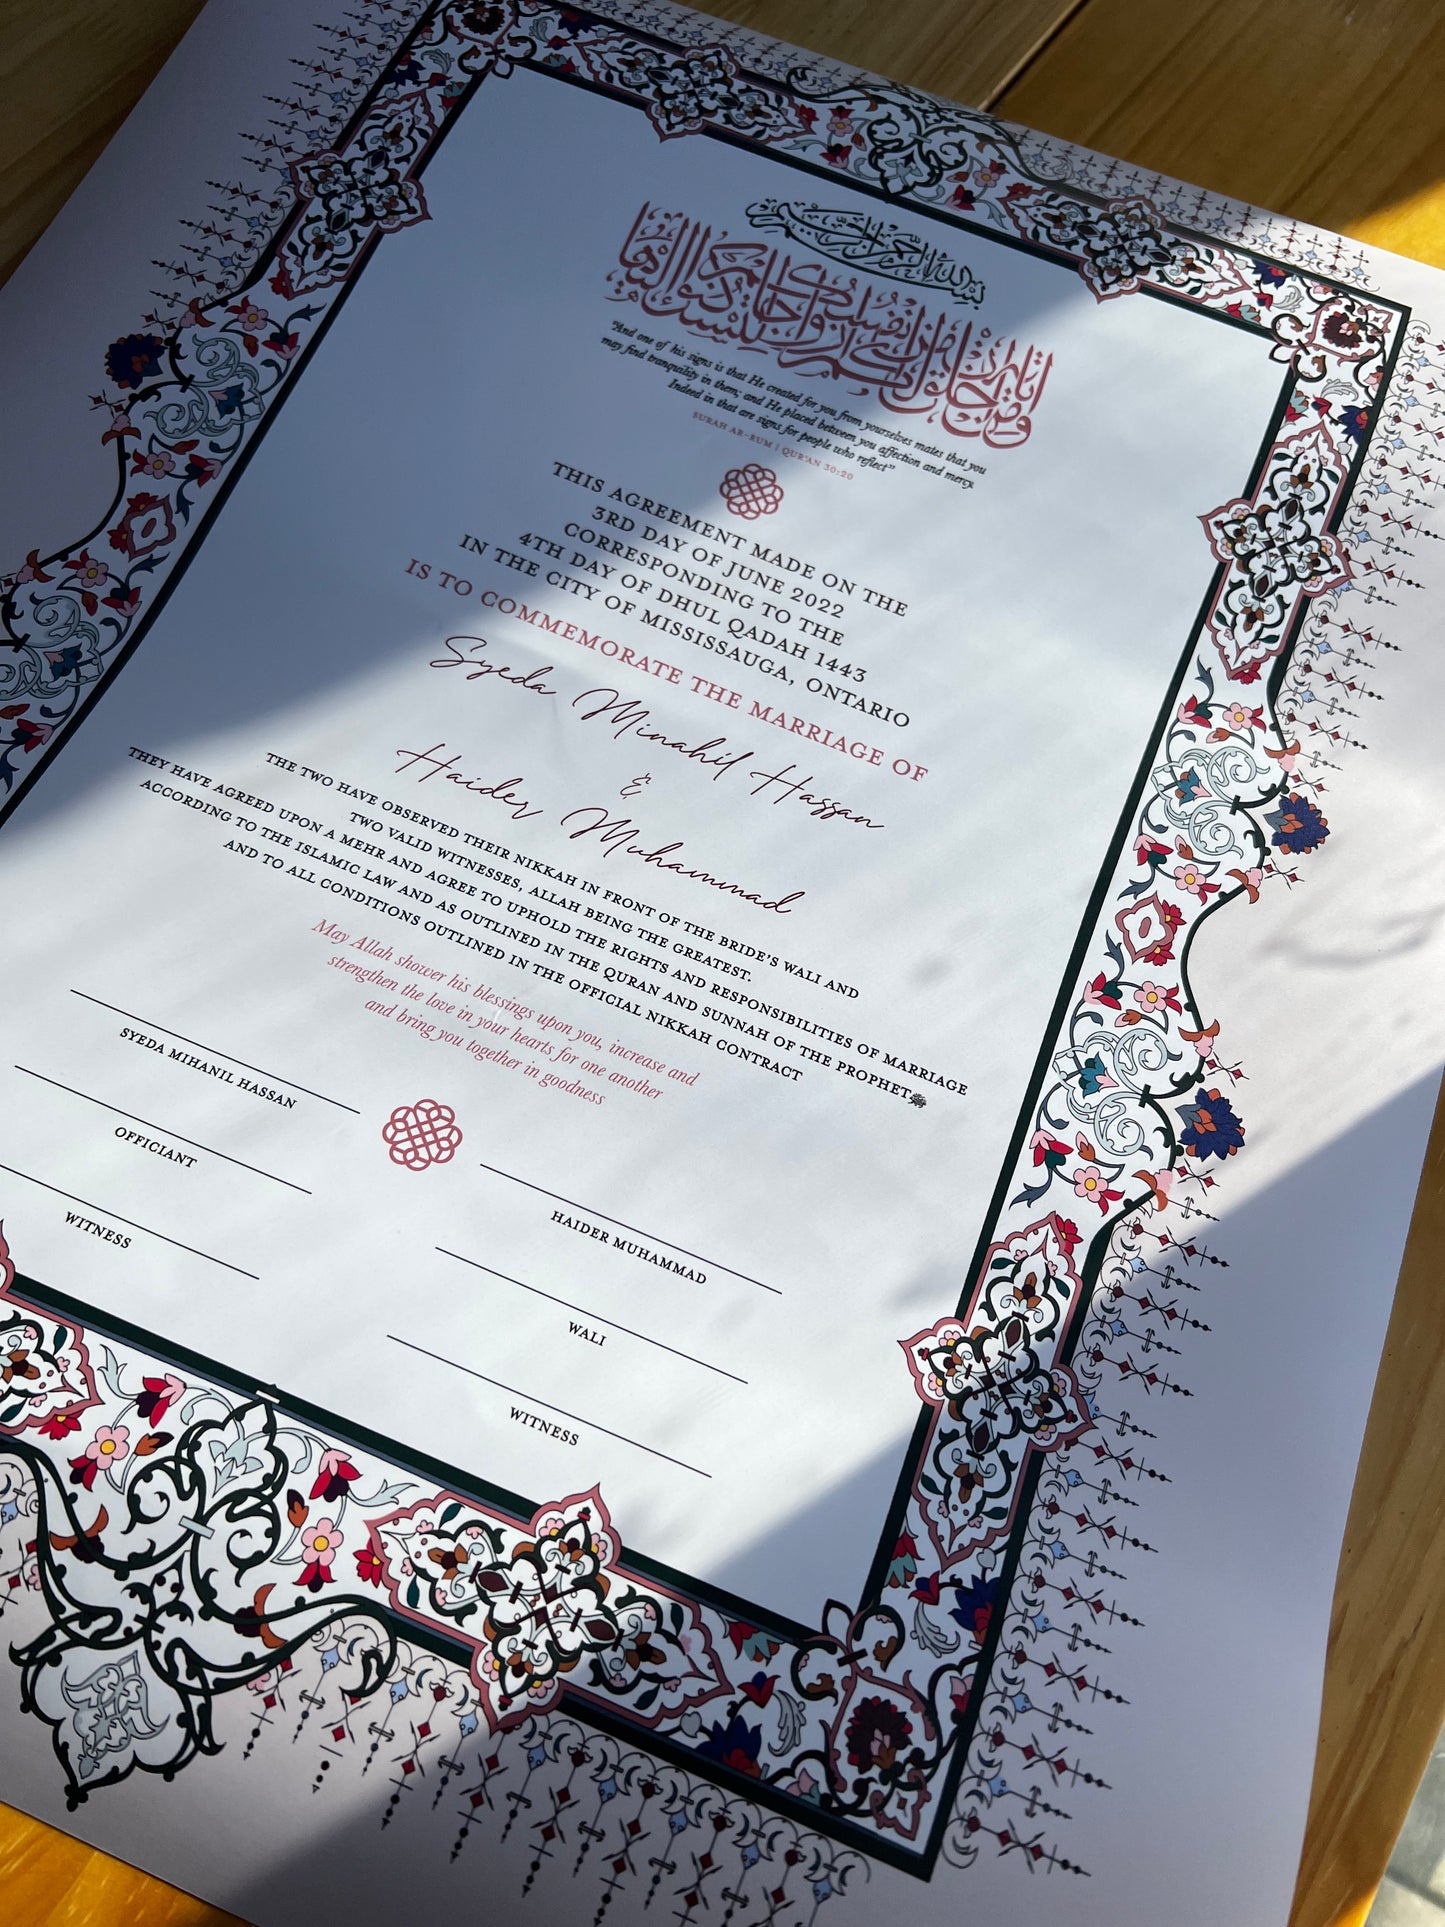 بسم الله الرحمن الرحيم
ومن آياته أن خلق لكم من أنفسكم أزواجا لتسكنوا إليها
"And one of his signs is that He created for you from yourselves mates that you
may find tranquility in them; and He placed between you affection and mercy.
Indeed in that are signs for people who reflect"
SURAH AR-RUM | QUR'AN 30:20
THIS AGREEMENT MADE ON THE
3RD DAY OF JUNE 2022
CORRESPONDING TO THE
4TH DAY OF DHUL QADAH 1443
IN THE CITY OF MISSISSAUGA, ONTARIO
IS TO COMMEMORATE THE MARRIAGE OF
Syeda Minahil Hassan
&
Haider Muhammad
THE TWO HAVE OBSERVED THEIR NIKKAH IN FRONT OF THE BRIDE'S WALI AND
TWO VALID WITNESSES, ALLAH BEING THE GREATEST.
THEY HAVE AGREED UPON A MEHR AND AGREE TO UPHOLD THE RIGHTS AND RESPONSIBILITIES OF MARRIAGE
ACCORDING TO THE ISLAMIC LAW AND AS OUTLINED IN THE QURAN AND SUNNAH OF THE PROPHETﷺ
AND TO ALL CONDITIONS OUTLINED IN THE OFFICIAL NIKKAH CONTRACT
May Allah shower his blessings upon you, increase and
strengthen the love in your hearts for one another
and bring you together in goodness
SYEDA MIHANIL HASSAN
HAIDER MUHAMMAD
OFFICIANT
WALI
WITNESS
WITNESS